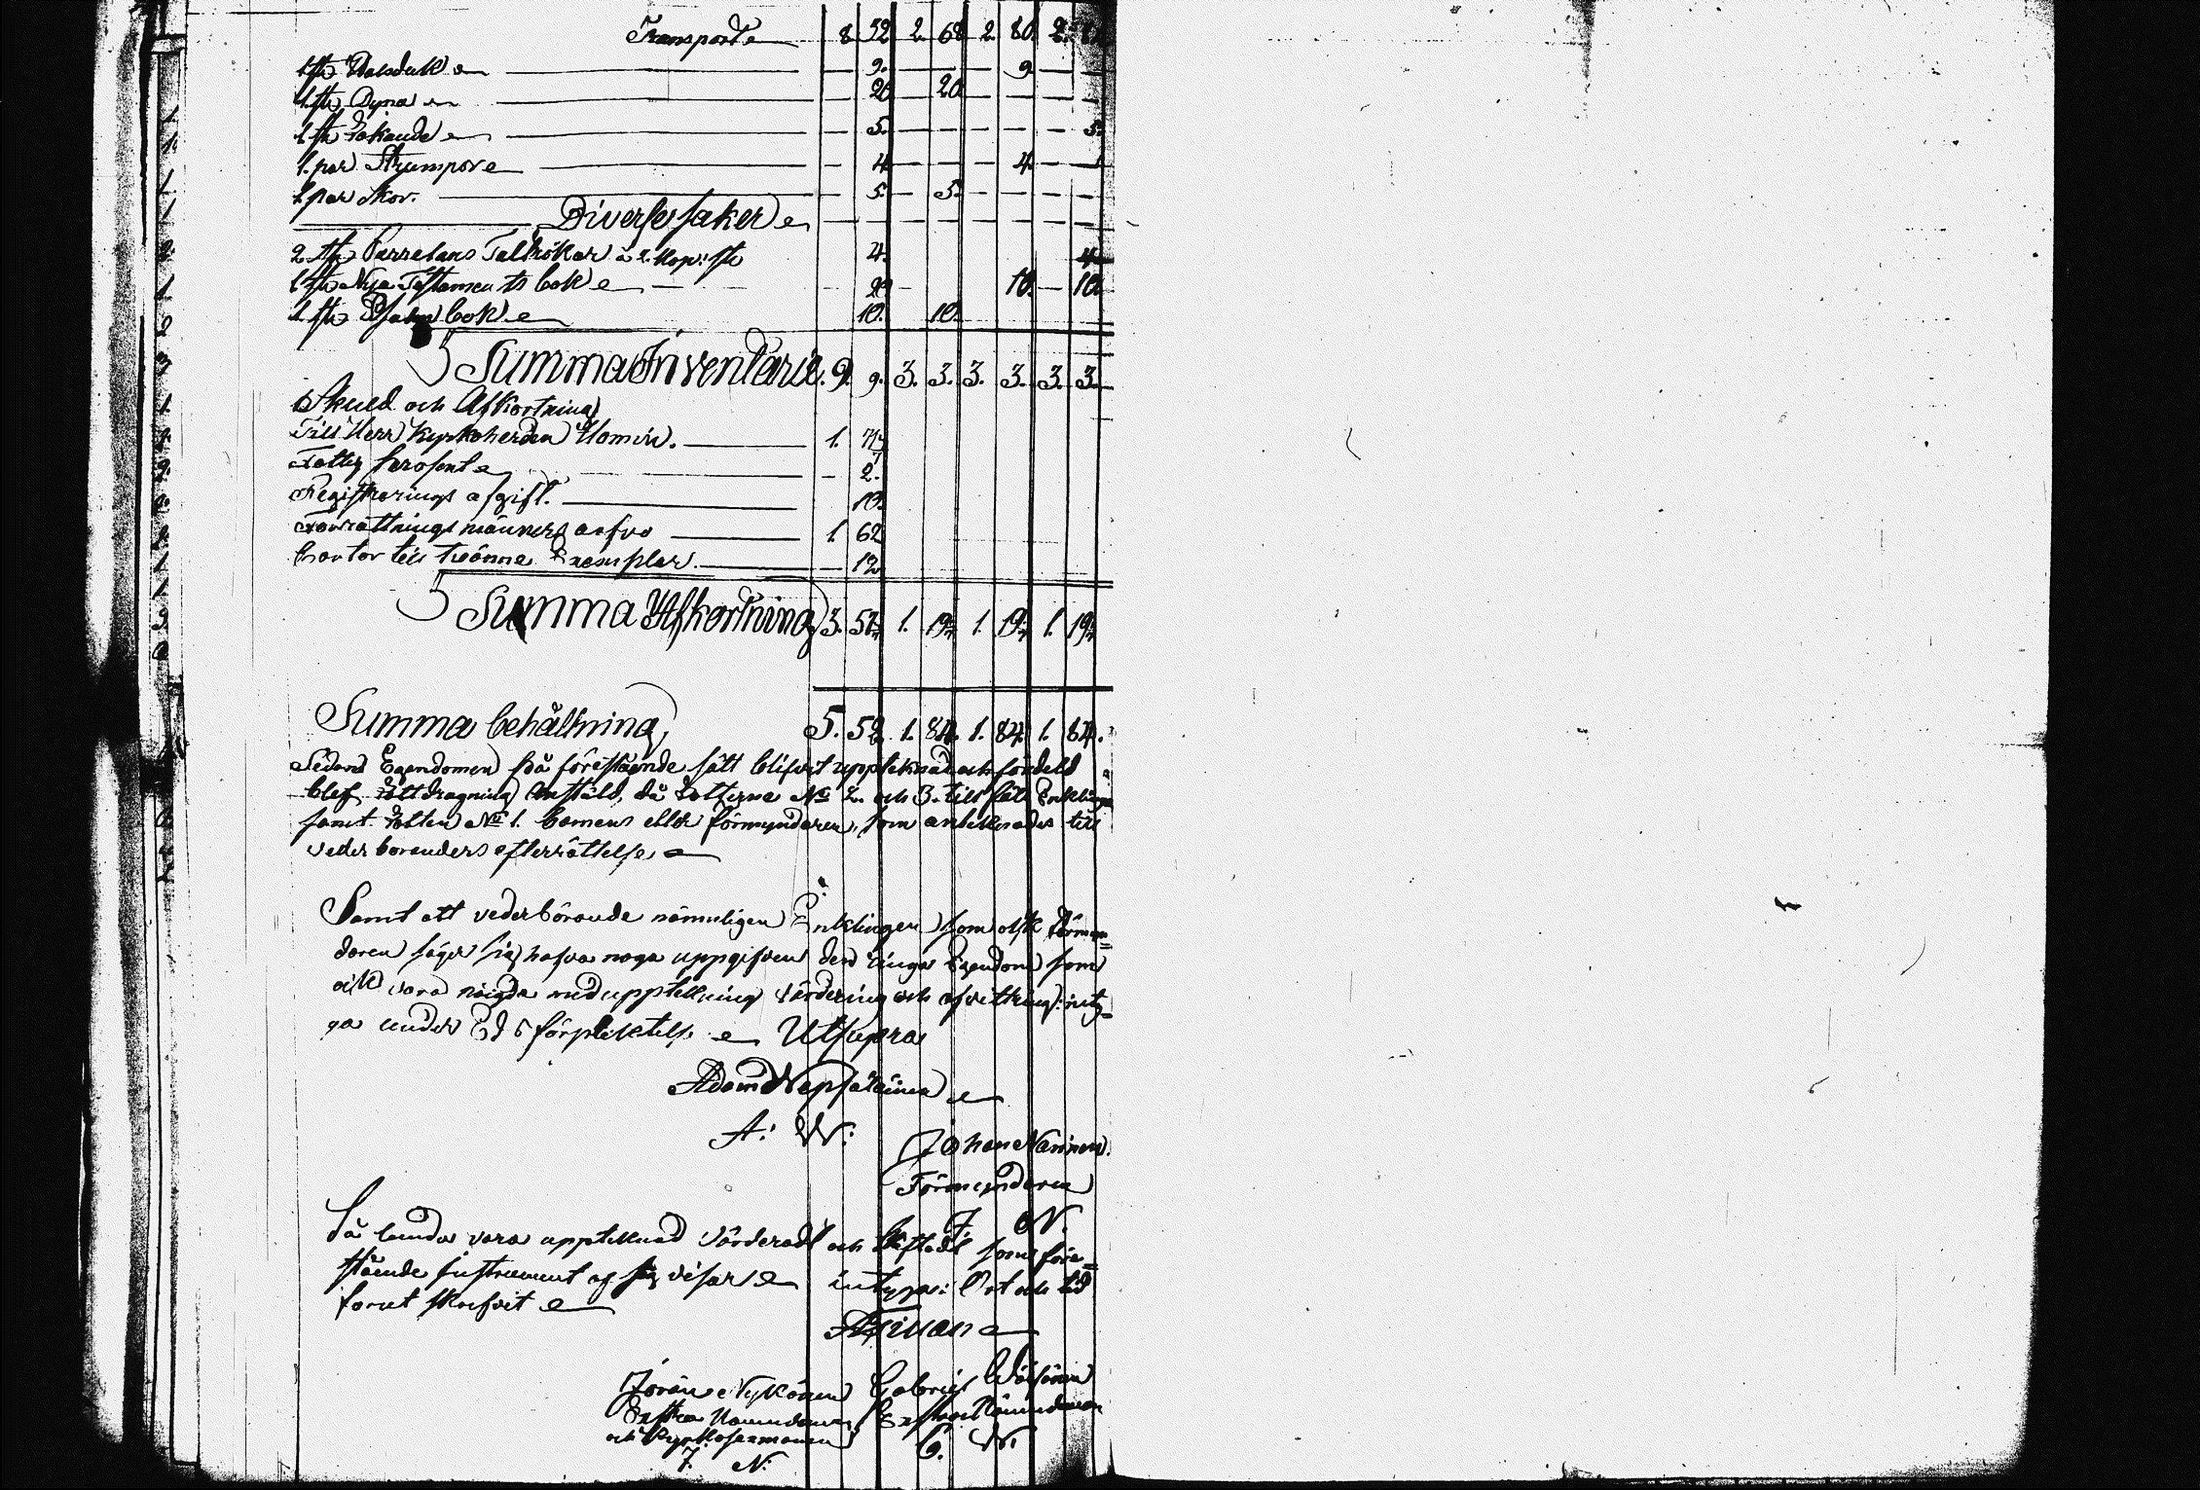 Transport 8 52 2. 68 2. 80. 2.
1 st. Halsduk — 9. — — — 9 — —
1 st. Dyna — 20 — 20 — — — —
1 st. Täkande — 5. — — — — — 5.
1. par Strumpor — 4. — — — 4. — —
1 par Skor. — 5. — 5. — — — —
Diverse saker
2 st. Tallrikar à 2. Kop: st. 4. 4.
1 st. Nya Testaments bok — 20 — 10. — 10.
1. st. Psalm bok. 10. 10.
Summa Inventarie. 9. 9. 3. 3. 3. 3. 3. 3.
Skuld och Afkortning
Till Herr Kyrkoherden 1.
Fattig Procent — 2.
Registrerings afgift. 10.
Förrättnings männers arfvo 1. 62
Chartor till trenne Exemplar. 12
Summa Afkortning 3. 57 1. 19 1. 19 1. 19
Summa behållning 5. 52. 1. 84. 1. 84. 1. 84.
Sedan Egendomen på förestående sätt blifvit upptecknad och fördeld
blef Lottdragning anstäld, då Lotterne No 2. och 3. till föll Enklingen
samt Lotten No 1. barnens eller förmyndaren, som antecknades till
vederbörandes efterrättelse
Samt att vederbörande nämnligen Enklingen som ock Förmyn=
daren säger sig hafva noga uppgifven den ringa Egendom som
ock vara nöigda med uppteckning värdering och afvittring: inty=
ga under Eds förpliktelse Ut supra
Adam
A: W:
Johan Narinen.
Förmyndaren
J. N.
Så lunda vara upptecknad Värderadt och skiftadt som före=
stående Instrument af sig visar intygar: Ort och tid
förut skrifvit
Göran Nykänen Gabriel Väisänen
Extra Nämndeman Extra Nämndeman
och Kyrkosexmannen G. W:
J. N: